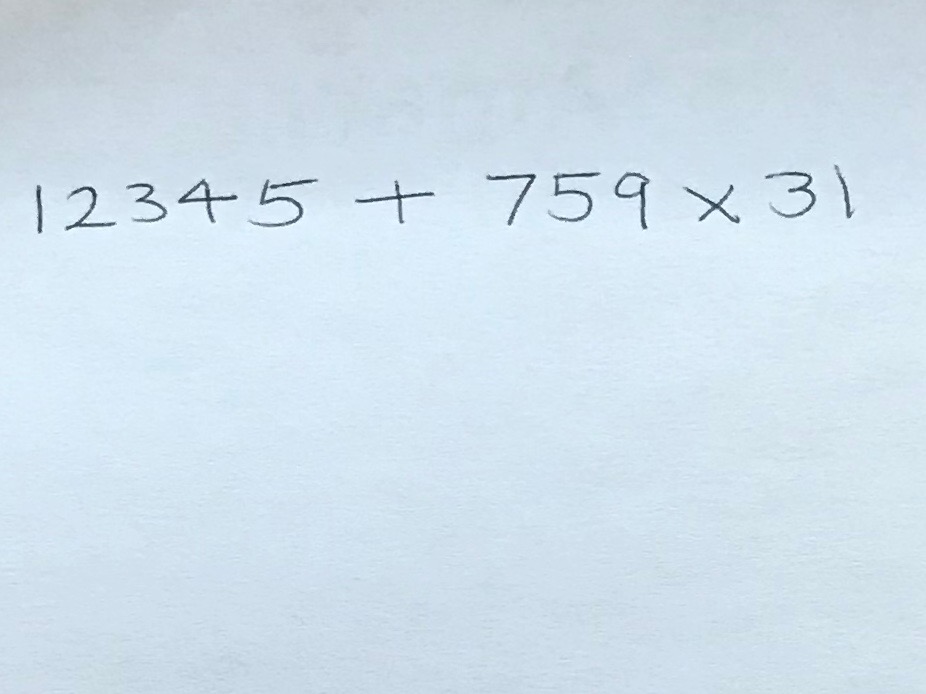 12345 + 759 × 31